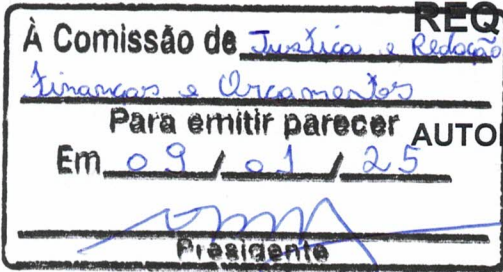 REQ
À Comissão de Justiça e Redação
Finanças e Orçamentos
Para emitir parecer
AUTO
Em 09 / 01 / 25
Presidente